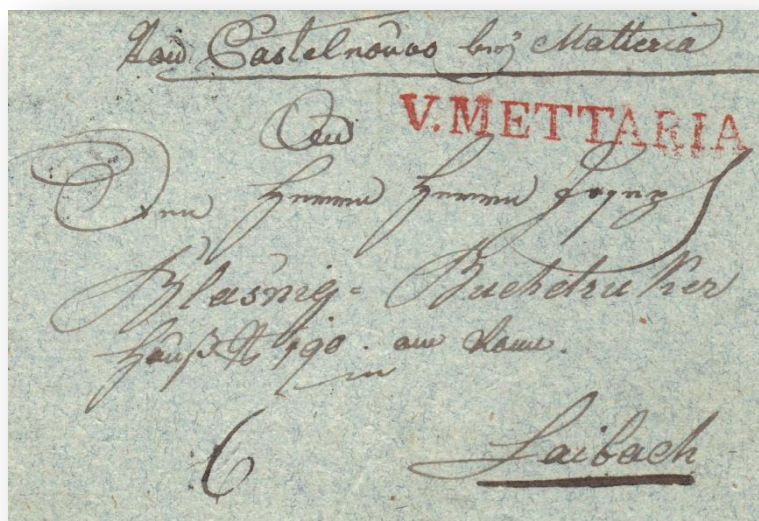 Von Castelnovao bei Matteria
V. METTARIA
An
Den Herrn Herrn Josep
Blasnig= Buchdruker
Hauß No 190. am Raun.
in
6 Laibach